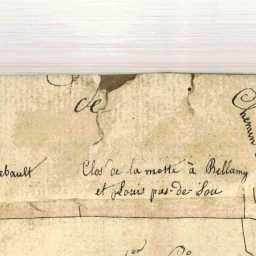 de
Chemin
ebault
Clos de la motte à Bellamy
et Louis pas-de-Sou